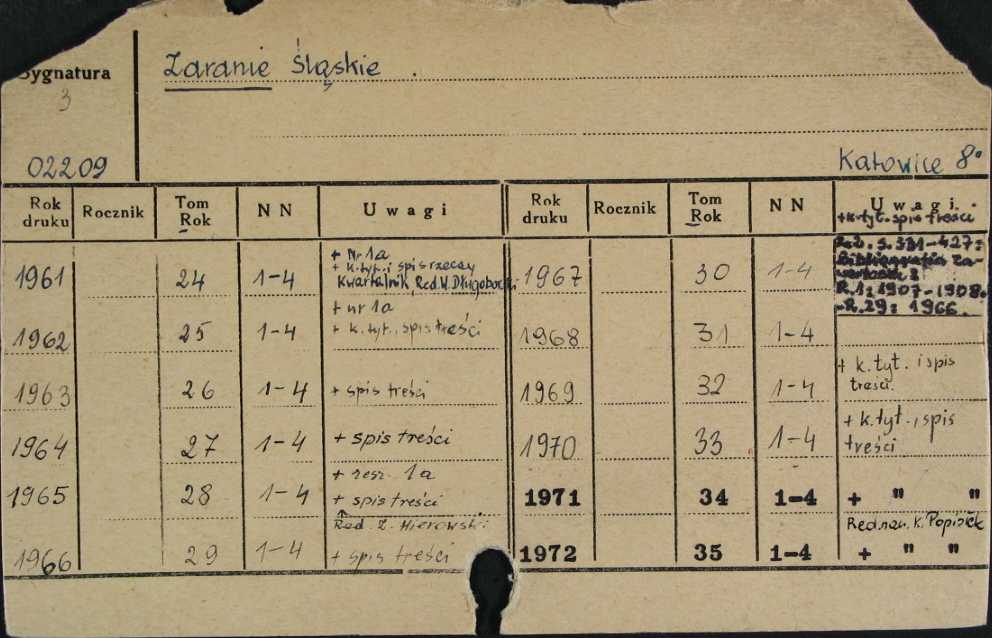 Sygnatura
3
02209
Zaranie Śląskie .
Katowice 8°
Rok druku Rocznik Tom Rok N N Uwagi Rok druku Rocznik Tom Rok N N Uwagi.
+ k. tyt. spis treści
1961 24 1-4 + Nr 1a
+ k. tyt. i spis rzeczy
Kwartalnik, Red. W. Długoborski
1967 30 1-4 R.2. s. 331-427:
Bibliografia za-
wartości:
R.1: 1907-1908.
-R.29: 1966.
1962 25 1-4 + nr 1a
+ k. tyt., spis treści
1968 31 1-4
1963 26 1-4 + spis treści
1969 32 1-4 + k. tyt. i spis
treści.
1964 27 1-4 + spis treści
1970 33 1-4 + k. tyt., spis
treści
1965 28 1-4 + resz. 1a
+ spis treści
1971 34 1-4 + " "
Red. Z. Hierowski
1966 29 1-4 + spis treści
Red. nacz. K. Popiołek
1972 35 1-4 + " "